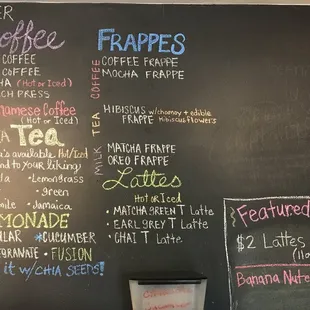 ER
offee
COFFEE
COFFEE
HA (Hot or Iced)
CH PRESS
namese Coffee
(Hot or Iced)
A Tea
a's available Hot/Iced
nd to your liking!
la • Lemongrass
• green
mile • Jamaica
MONADE
LAR * CUCUMBER
EGRANATE • FUSION
it w/ CHIA SEEDS!
FRAPPES
COFFEE
COFFEE FRAPPE
MOCHA FRAPPE
TEA
HIBISCUS w/ chamoy + edible
FRAPPE Hibiscus Flowers
MILK
MATCHA FRAPPE
OREO FRAPPE
Lattes
HOT OR ICED
• MATCHA GREEN T Latte
• EARL GREY T Latte
• CHAI T Latte
Featured
$2 Lattes
Banana Nute